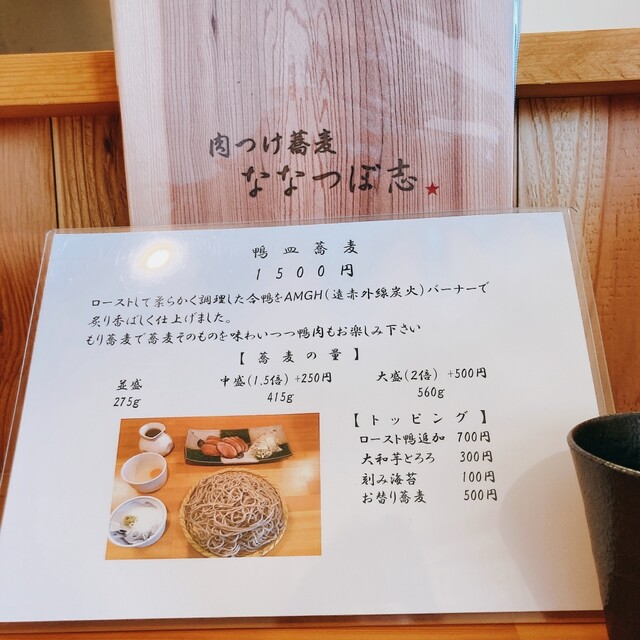 肉つけ蕎麦
ななつぼ志★
鴨皿蕎麦
1500円
ローストして柔らかく調理した合鴨をAMGH(遠赤外線炭火)バーナーで
炙り香ばしく仕上げました。
もり蕎麦で蕎麦そのものを味わいつつ鴨肉もお楽しみ下さい
【蕎麦の量】
並盛 中盛(1.5倍) +250円 大盛(2倍) +500円
275g 415g 560g
【トッピング】
ロースト鴨追加 700円
大和芋とろろ 300円
刻み海苔 100円
お替り蕎麦 500円